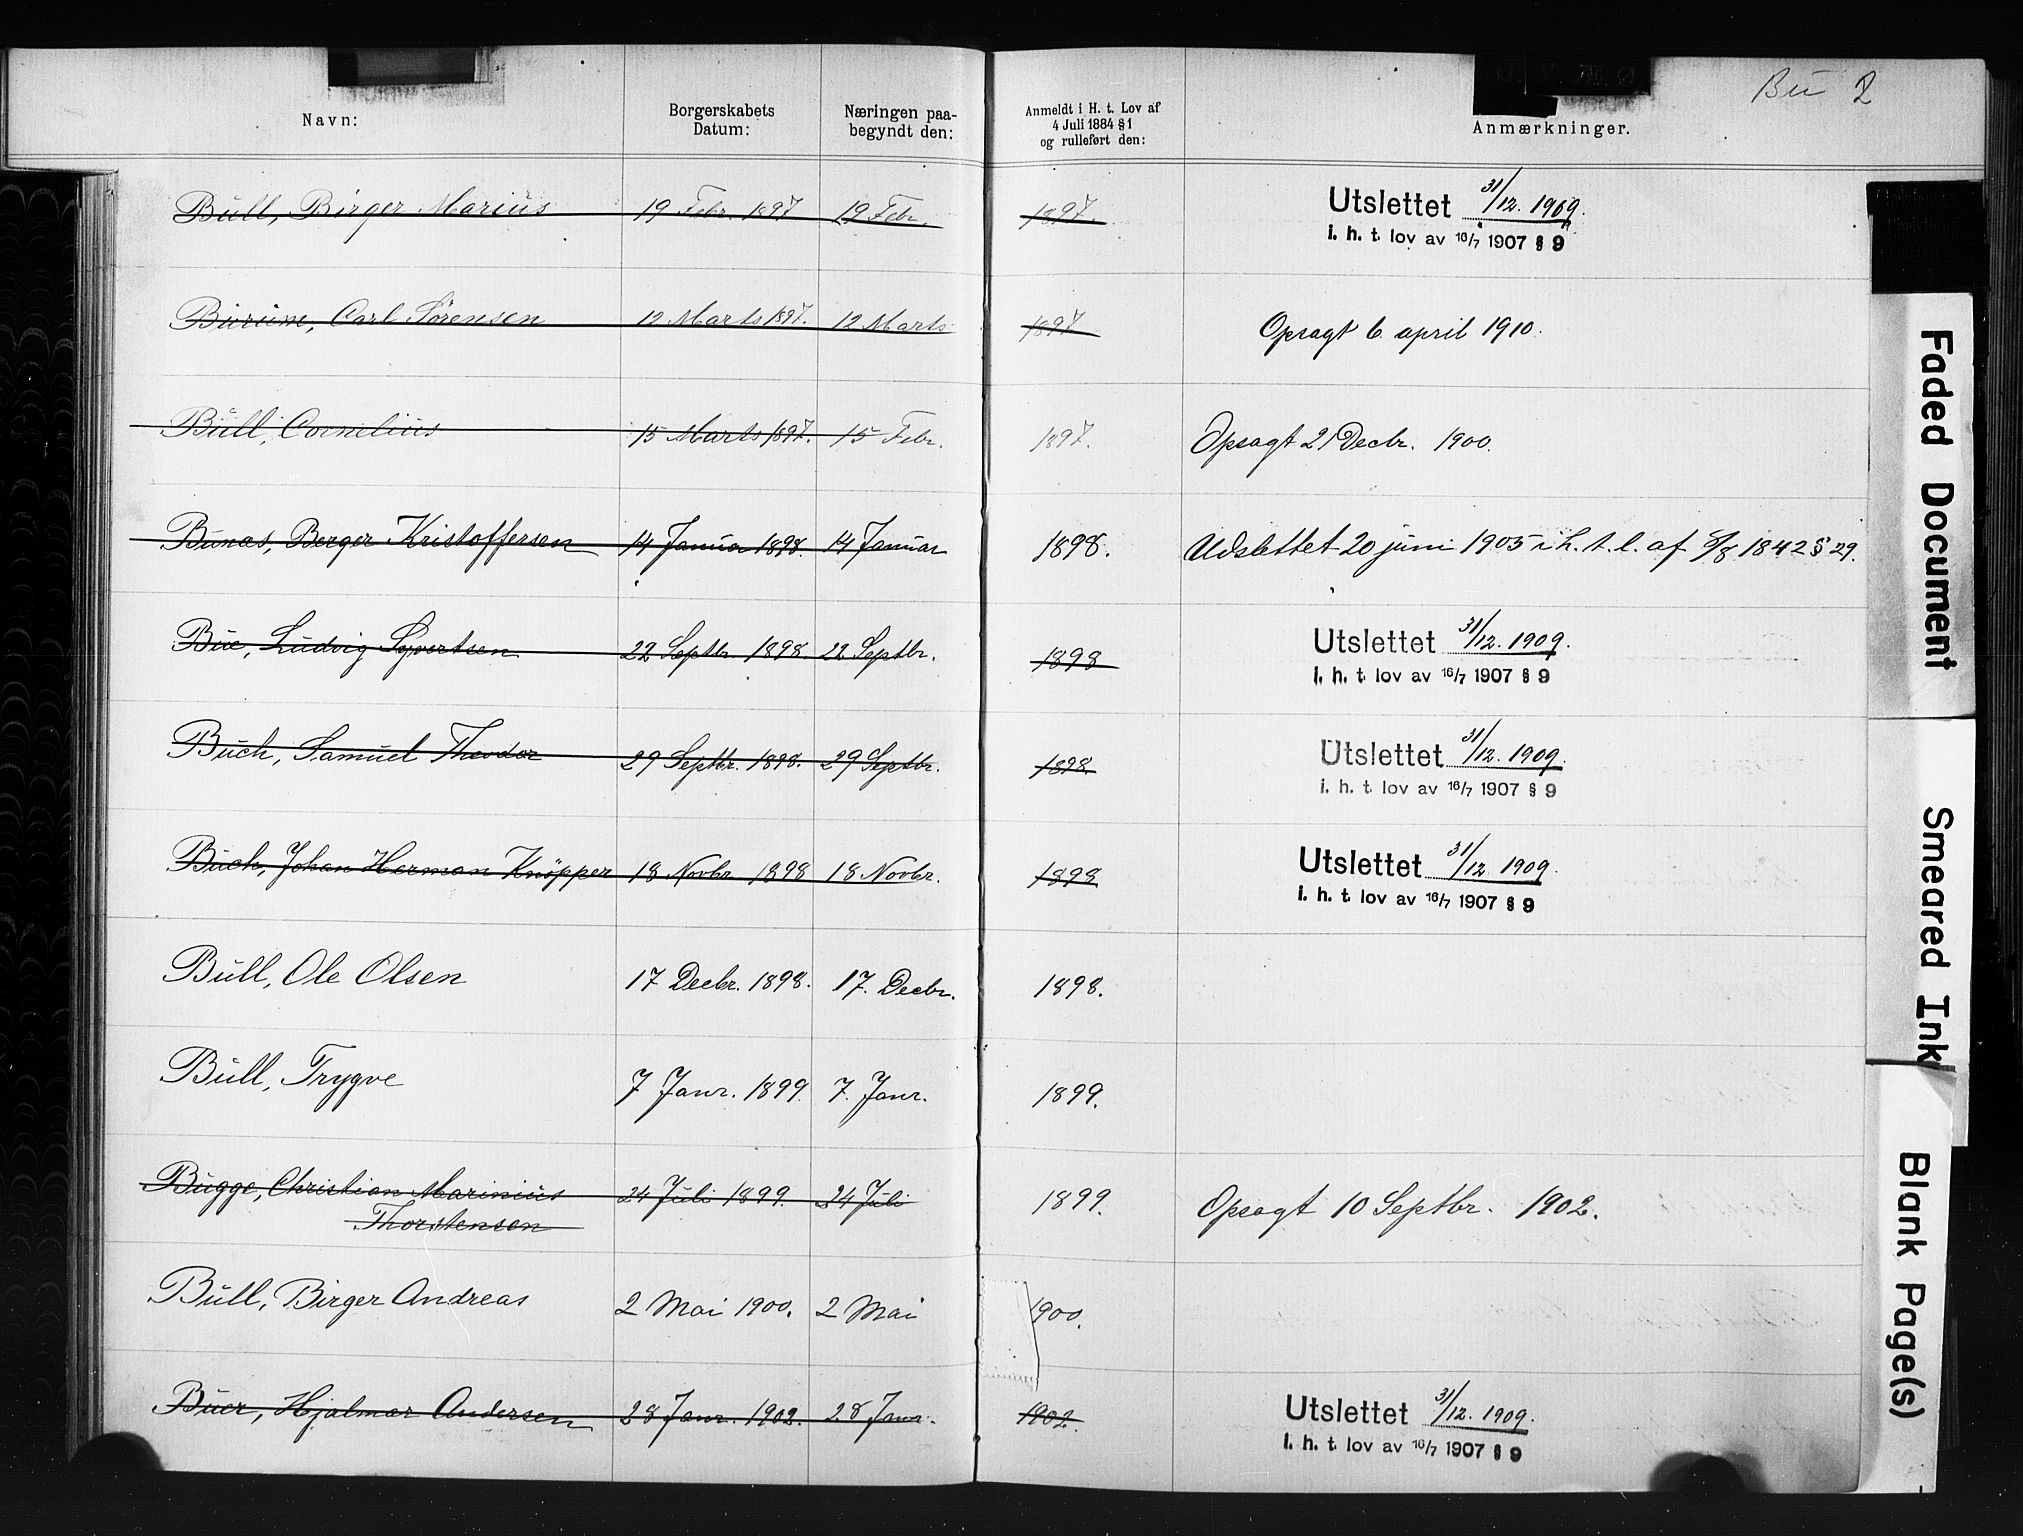 Bu 2
Navn:
Borgerskabets Datum:
Næringen paabegyndt den:
Anmeldt i H. t. Lov af 4 Juli 1884 § 1 og rulleført den:
Anmærkninger.
Bull, Birger Marius 19 Febr. 1897 19 Febr. 1897. Utslettet 31/12. 1909.
i. h. t. lov av 16/7 1907 § 9
Burum, Carl Sørensen 12 Marts 1897. 12 Marts 1897 Opsagt 6 april 1910.
Bull, Cornelius 15 Marts 1897. 15 Febr. 1897. Opsagt 21 Decbr. 1900.
Bunæs, Berger Kristoffersen 14 Januar 1898. 14 Januar 1898. Udslettet 20 juni 1905 i h. t. l. af 8/8 1842 § 29.
Bue, Ludvig Syvertsen 22 Septbr. 1898. 22 Septbr. 1898 Utslettet 31/12. 1909.
i. h. t. lov av 16/7 1907 § 9
Buch, Samuel Theodor 29 Septbr. 1898. 29 Septbr. 1898. Utslettet 31/12. 1909.
i. h. t. lov av 16/7 1907 § 9
Buch, Johan Herman Knöpper 18 Novbr 1898 18 Novbr. 1898 Utslettet 31/12 1909.
i. h. t. lov av 16/7 1907 § 9
Bull, Ole Olsen 17 Decbr. 1898. 17. Decbr. 1898.
Bull, Trygve 7 Janr. 1899. 7. Janr. 1899.
Bugge, Christian Marinius 24 Juli 1899. 24 Juli 1899. Opsagt 10 Septbr. 1902.
Thorstensen
Bull, Birger Andreas 2 Mai 1900. 2 Mai 1900.
Buer, Hjalmar Andersen 28 Janr. 1902. 28 Janr. 1902. Utslettet 31/12. 1909.
i. h. t. lov av 16/7 1907 § 9
Faded Document
Smeared Ink
Blank Page(s)